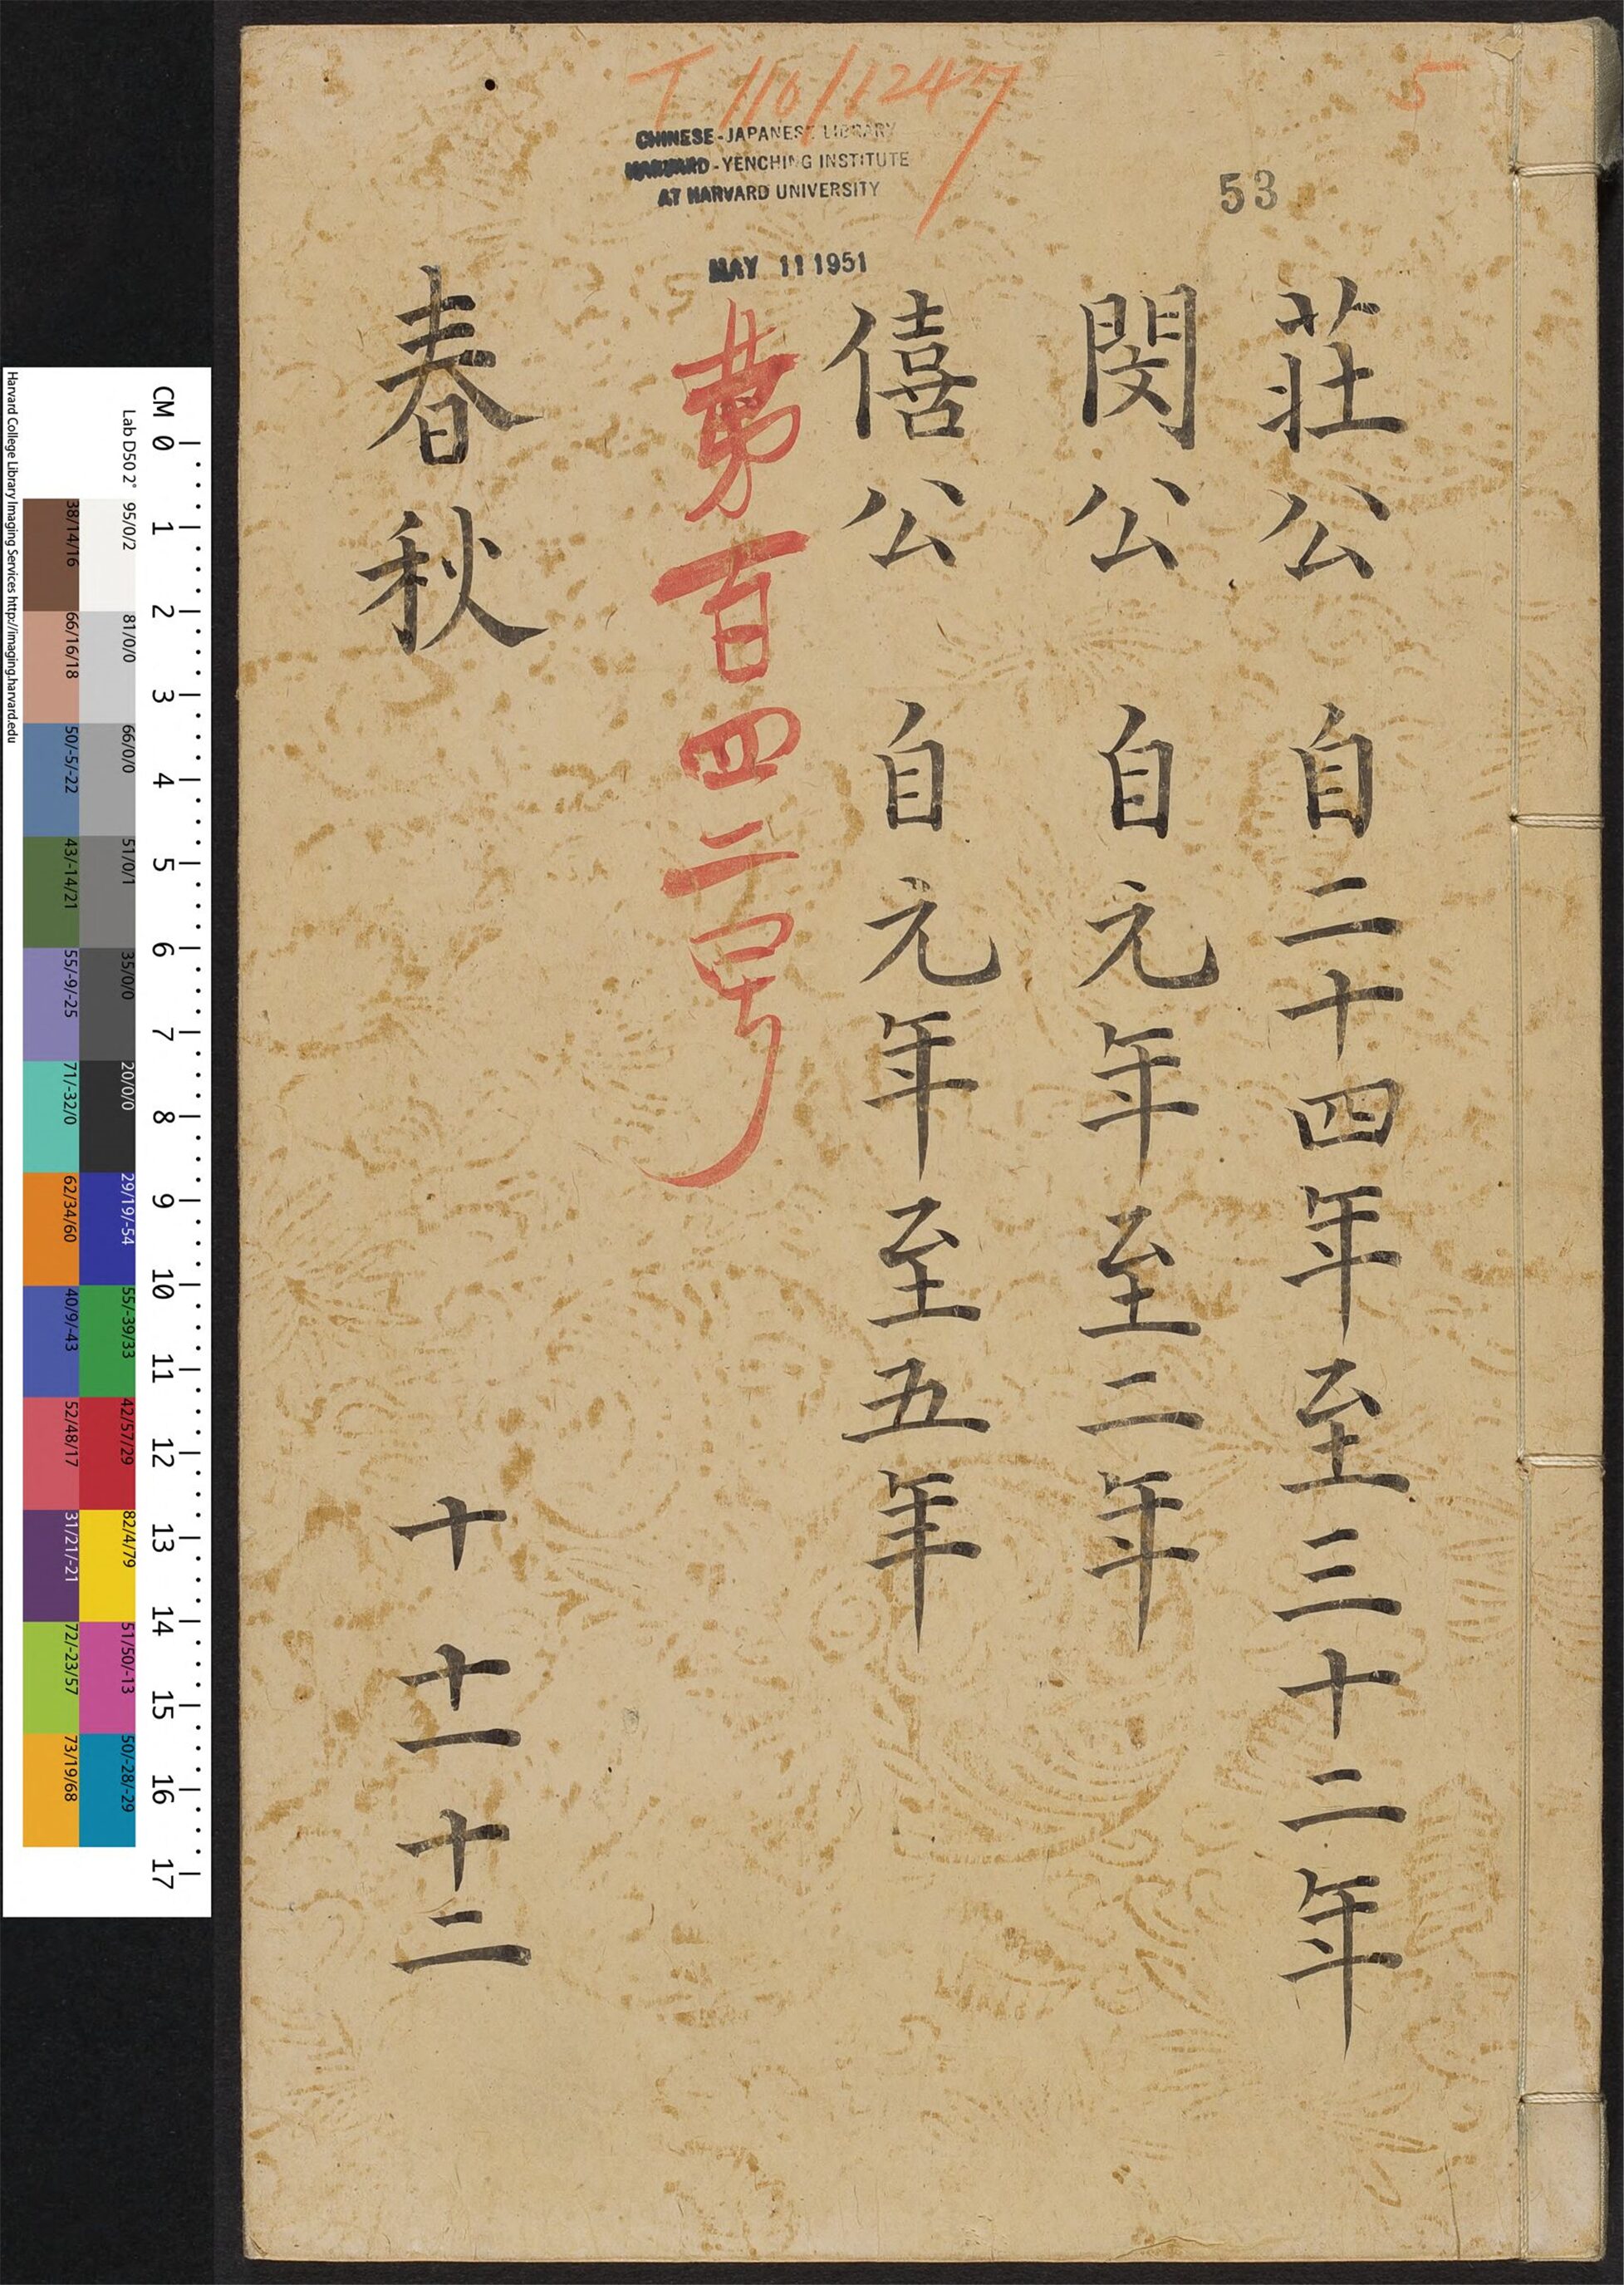 T 110/1247
5
CHINESE-JAPANESE LIBRARY
HARVARD-YENCHING INSTITUTE
AT HARVARD UNIVERSITY
MAY 11 1951
53
荘公 自二十四年至三十二年
閔公 自元年至二年
僖公 自元年至五年
第百四二号
春秋 十 十一 十二
CM 0 1 2 3 4 5 6 7 8 9 10 11 12 13 14 15 16 17
Lab D50 2° 95/0/2 81/0/0 66/0/0 51/0/1 35/0/0 20/0/0 29/19/-54 55/-39/33 42/57/29 82/4/79 51/50/-13 50/-28/-29
38/14/16 66/16/18 50/-5/-22 43/-14/21 55/-9/-25 71/-32/0 62/34/60 40/9/-43 52/48/17 31/21/-21 72/-23/57 73/19/68
Harvard College Library Imaging Services http://imaging.harvard.edu